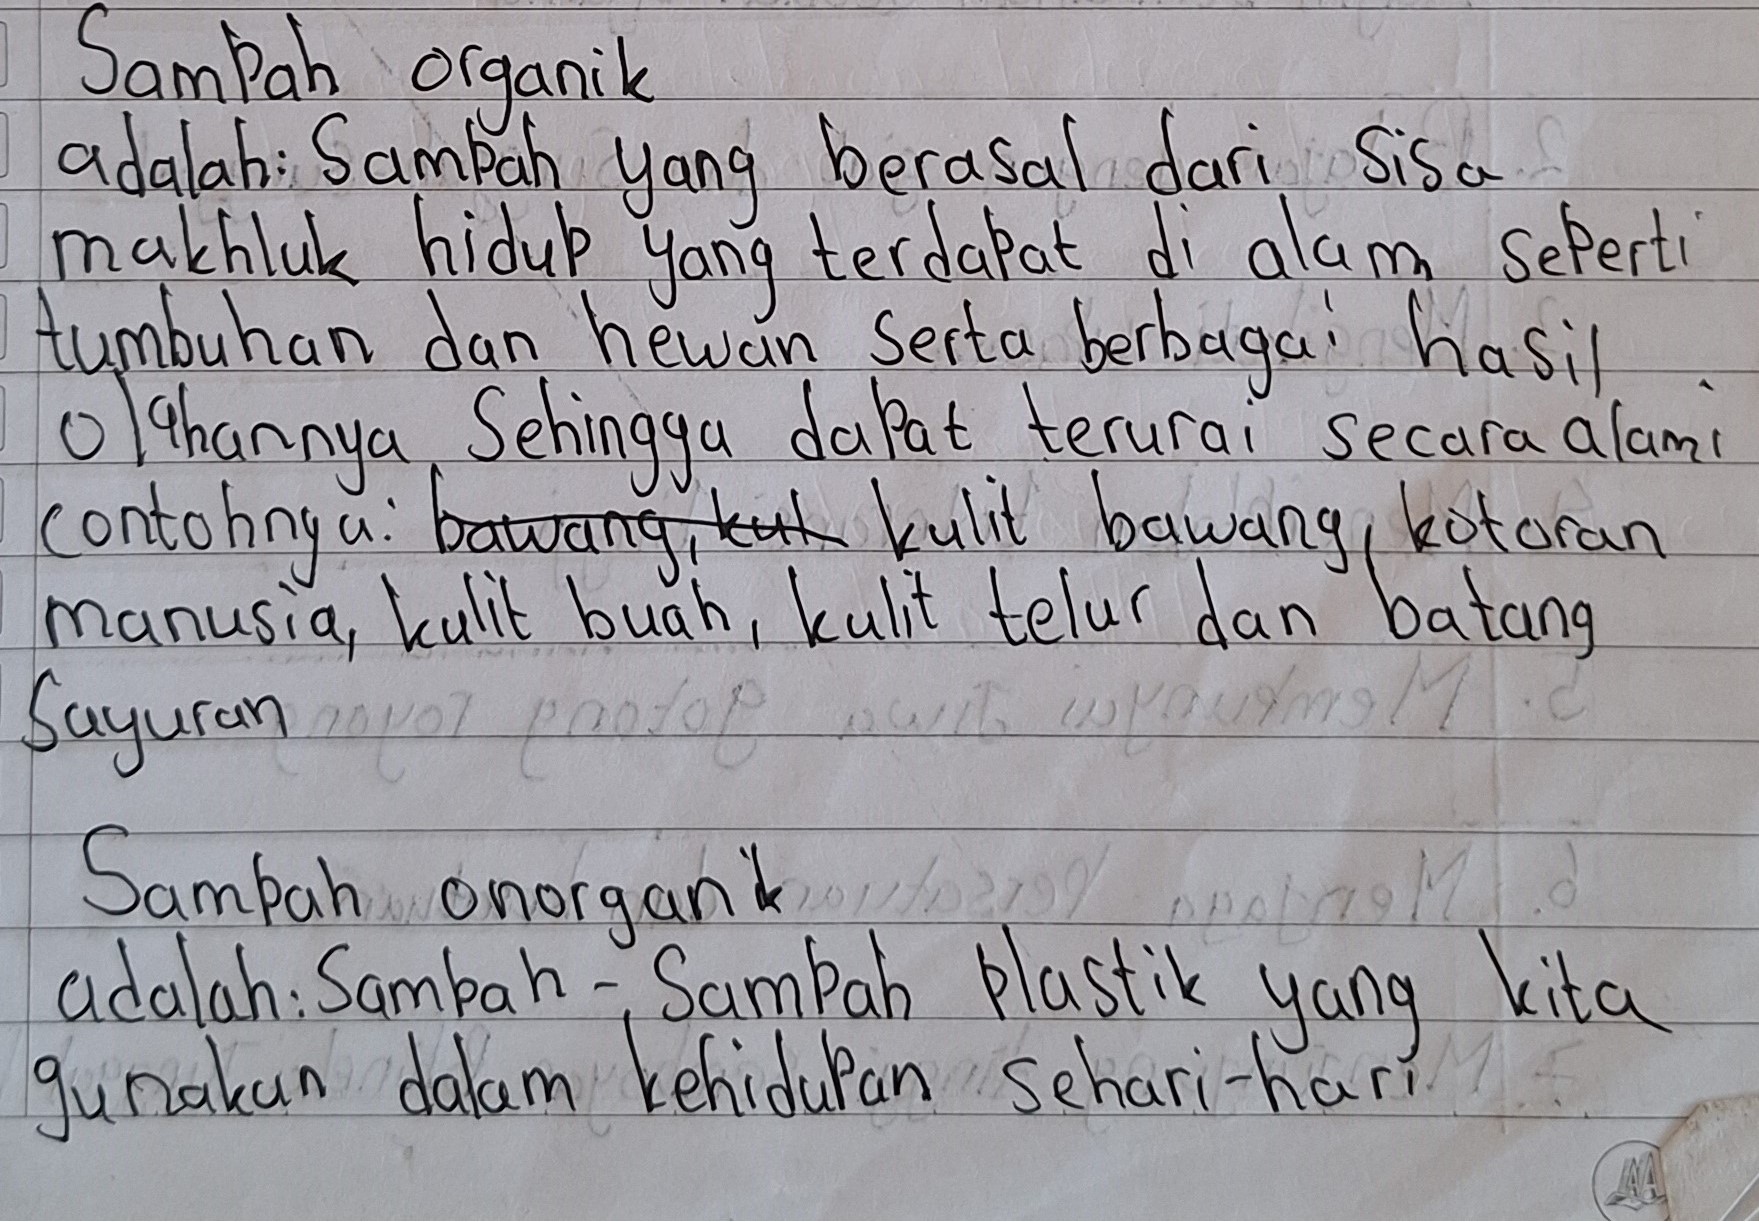 Sampah organik
adalah: Sampah yang berasal dari sisa
makhluk hidup yang terdapat di alam seperti
tumbuhan dan hewan serta berbagai hasil
olahannya Sehingga dapat terurai secara alami
contohnya: bawang, kul kulit bawang, kotoran
manusia, kulit buah, kulit telur dan batang
Sayuran
Sampah onorganik
adalah: Sampah - Sampah plastik yang kita
gunakan dalam kehidupan sehari-hari